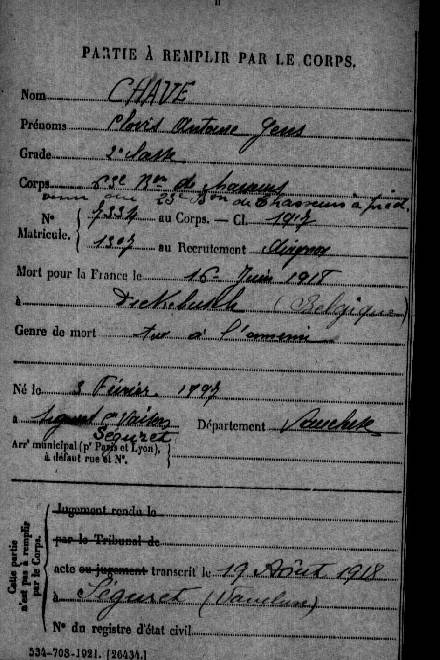 PARTIE À REMPLIR PAR LE CORPS.
Nom CHAVE
Prénoms Clovis Antoine
Grade 2e classe
Corps Bon de chasseurs
venu du 25e Bon de Chasseurs à pied
N° Matricule. 7334 au Corps. — Cl. 1917
1307 au Recrutement Avignon
Mort pour la France le 16 Juin 1918
à Dickebusch (Belgique)
Genre de mort tué à l'ennemi
Né le 3 Février 1897
à Séguret Département Vaucluse
Arrt municipal (pr Paris et Lyon),
à défaut rue et N°.
Cette partie n'est pas à remplir par le Corps.
Jugement rendu le
par le Tribunal de
acte ou jugement transcrit le 19 Août 1918
à Séguret (Vaucluse)
N° du registre d'état civil
534-708-1921. [26434.]